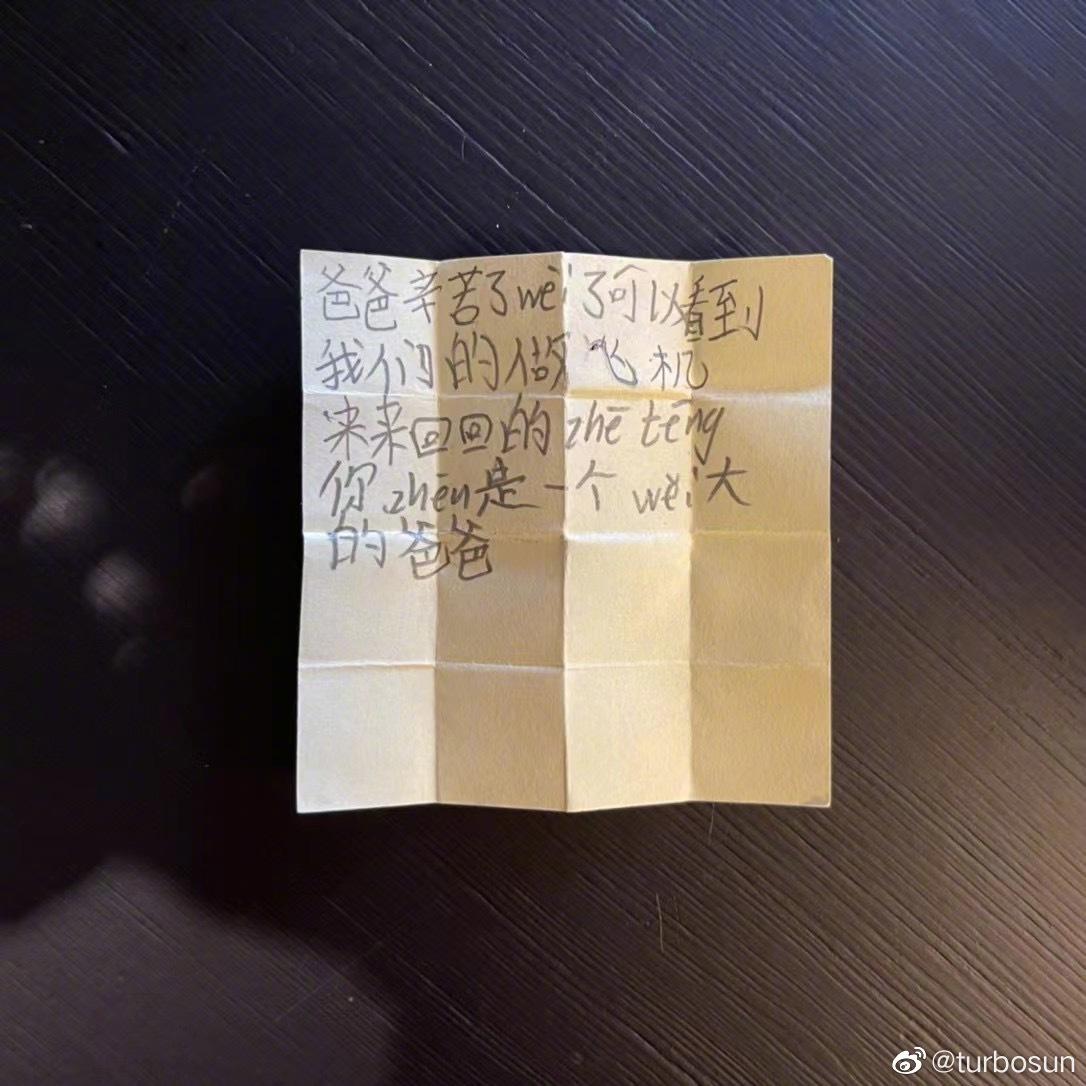 爸爸辛苦了wèi了可以看到
我们的做飞机
来来回回的zhē tēng
你zhēn是一个wěi大
的爸爸
@turbosun